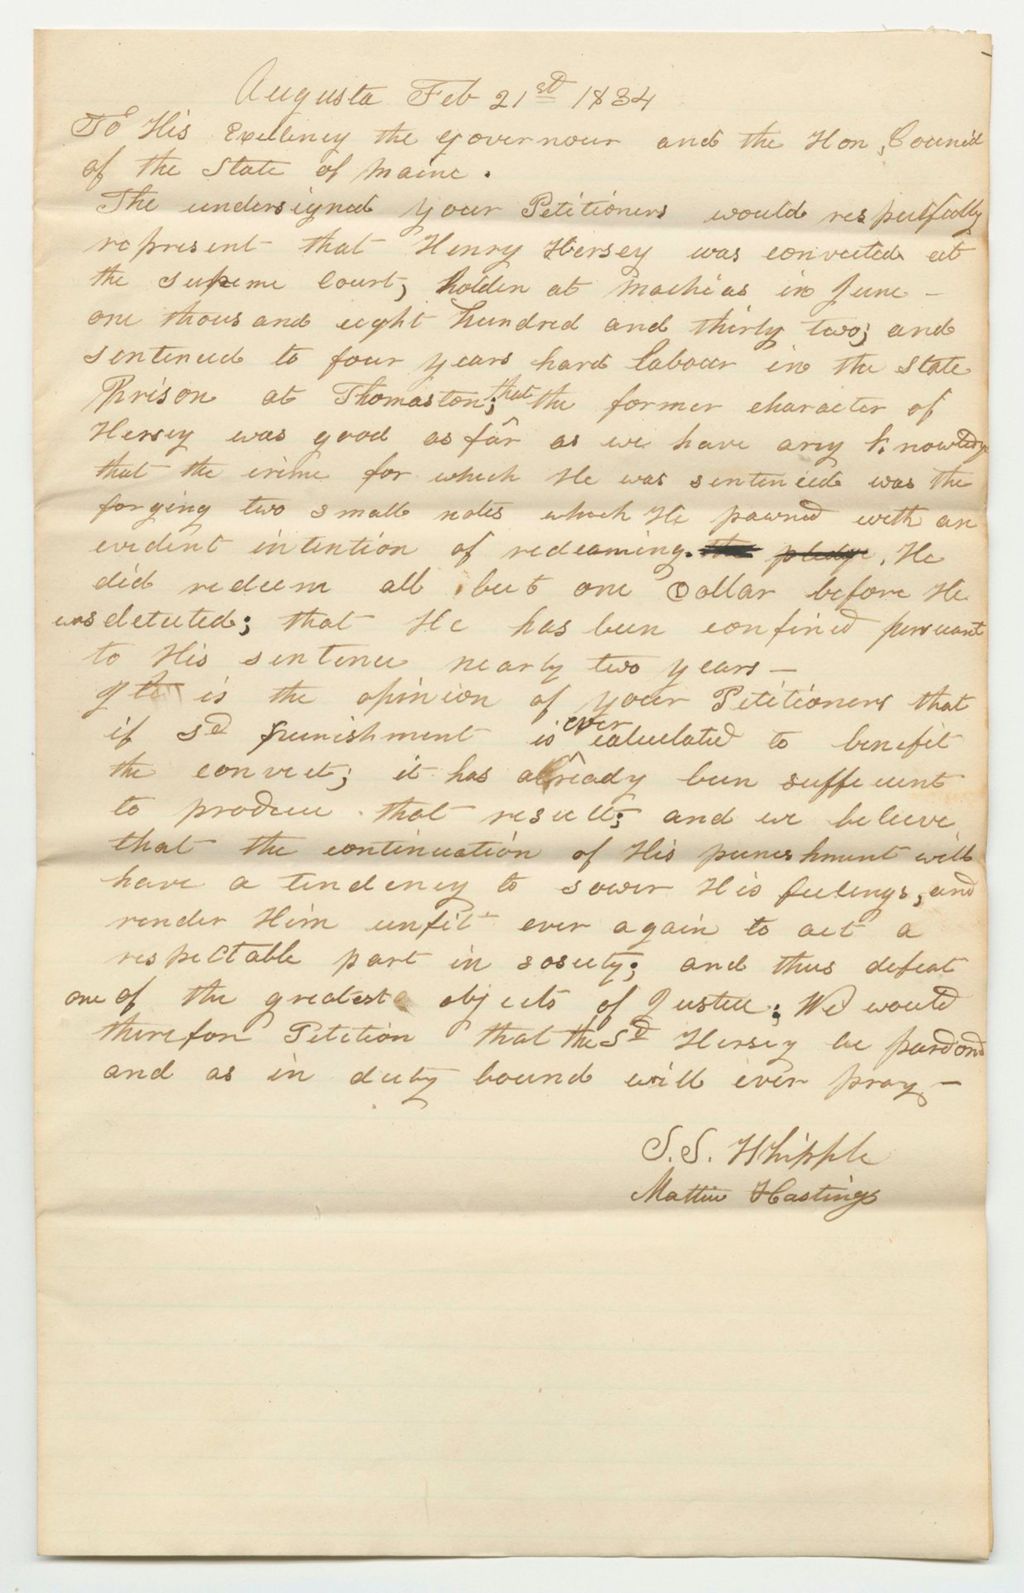 Augusta Feb 21st 1834
To His Excellency the Governour and the Hon, Council
of the State of Maine.
The undersigned your Petitioners would respectfully
represent that Henry Hersey was convicted at
the Supreme Court, holden at Machias in June -
one thousand eight hundred and thirty two; and
sentenced to four years hard labour in the State
Prison at Thomaston; that the former character of
Hersey was good as far as we have any knowledge
that the crime for which He was sentenced was the
forging two small notes which He pawned with an
evident intention of redeaming. the pledge. He
did redeem all but one Dollar before He
was detected; that He has been confined persuant
to His sentence nearly two years -
It is the opinion of your Petitioners that
if Sd punishment is ever calculated to benefit
the convict; it has already been suffecient
to produce that result; and we believe
that the continuation of His punishment will
have a tendency to sower His feelings, and
render Him unfit ever again to act a
respectable part in sosiety; and thus defeat
one of the greatest objects of Justice; We would
therefore Petition that the Sd Hersey be pardond
and as in duty bound will ever pray -
S. S. Whipple
Mattiw Hastings